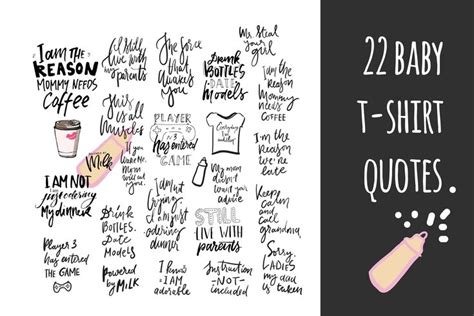 I am the
REASON
MOMMY NEEDS
Coffee
I Still
live with
my parents
the force
that
awakes
you
Mr Steal
your girl
DRINK
BOTTLES
DATE
MODELS
I am the
Reason
Mommy
needs
COFFEE
This
is all
Muscles
PLAYER
№3
has entered
GAME
I'm
the
Reason
we're
late
Milk
If you
Wake Me,
Mom will
I AM NOT
just ordering
My dinner
I am not
Crying
I am just
ordering
dinner
My man
doesn't
want
your advice
Keep
calm
and call
grandma
Drink
BOTTLES.
Date
Models
STILL
LIVE WITH
parents
Player 3
has entered
THE GAME
Powered
by MILK
I know
I AM
adorable
Instruction
-NOT-
included
Sorry,
LADIES
my dad
is taken
22 BABY
T-SHIRT
QUOTES.